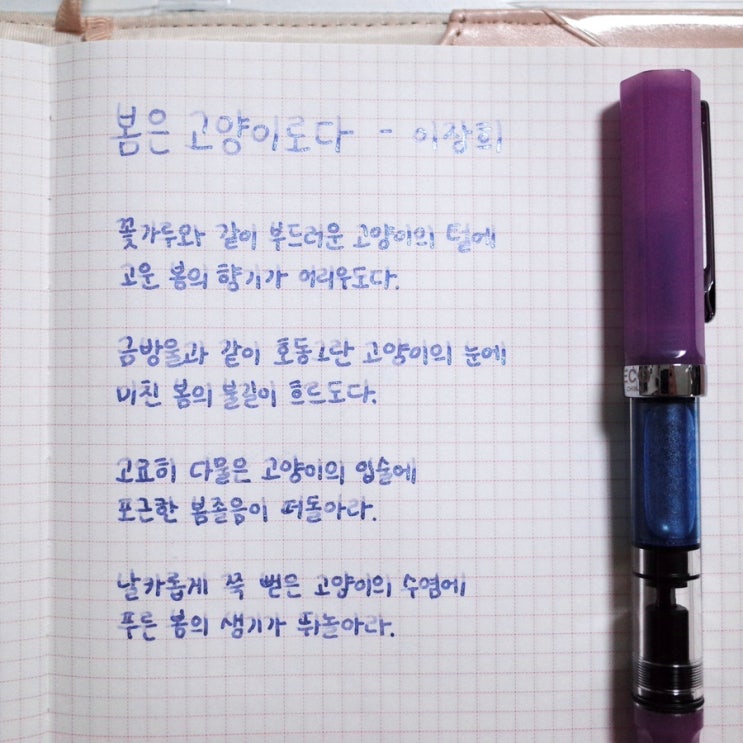 봄은 고양이로다 - 이장희
꽃가루와 같이 부드러운 고양이의 털에
고운 봄의 향기가 어리우도다.
금방울과 같이 호동그란 고양이의 눈에
미친 봄의 불길이 흐르도다.
고요히 다물은 고양이의 입술에
포근한 봄졸음이 떠돌아라.
날카롭게 쭉 뻗은 고양이의 수염에
푸른 봄의 생기가 뛰놀아라.
ECO